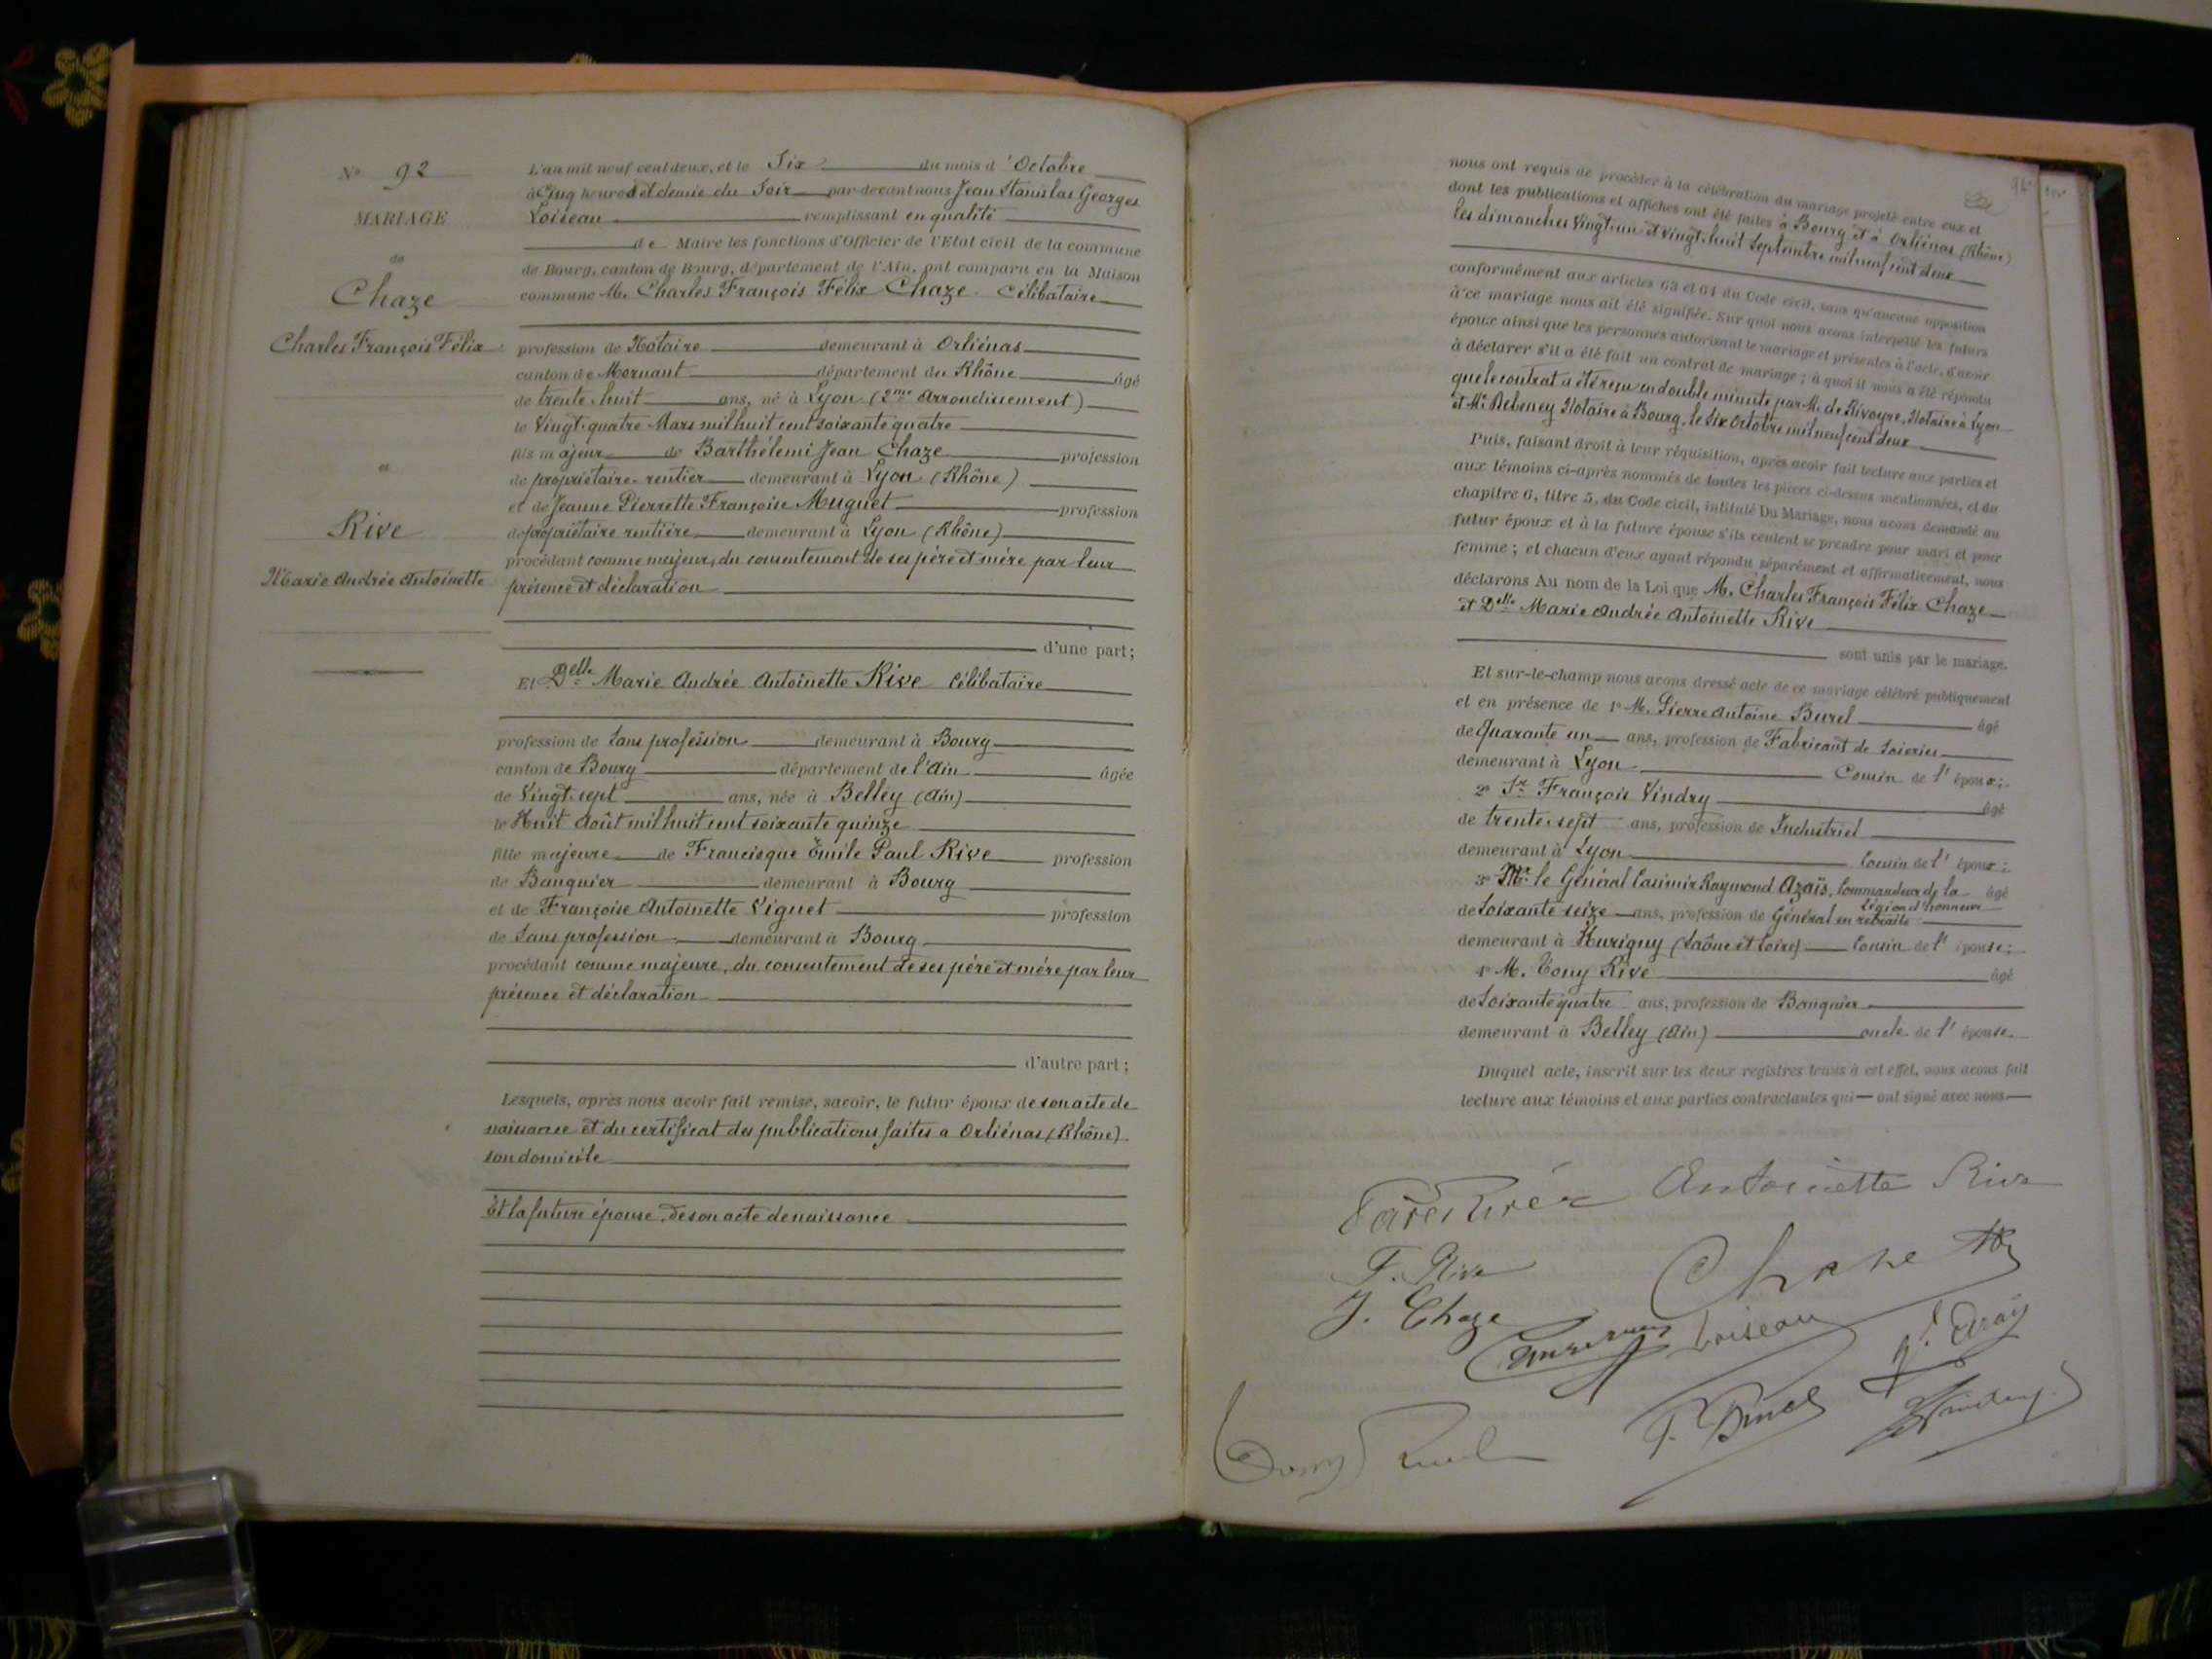 N° 92
MARIAGE
de
Chaze
Charles François Félix
et
Rive
Marie Andrée Antoinette
L'an mil neuf cent deux, et le Six du mois d'Octobre
à Cinq heures et demie du Soir par-devant nous Jean Stanislas Georges
Loiseau remplissant en qualité
de Maire les fonctions d'Officier de l'Etat civil de la commune
de Bourg, canton de Bourg, département de l'Ain, ont comparu en la Maison
commune M. Charles François Félix Chaze célibataire
profession de Notaire demeurant à Orliénas
canton de Mornant département du Rhône âgé
de trente-huit ans, né à Lyon (2me Arrondissement)
le Vingt-quatre Mars mil huit cent soixante quatre
fils majeur de Barthélemi Jean Chaze profession
de propriétaire-rentier demeurant à Lyon (Rhône)
et de Jeanne Pierrette Françoise Muguet profession
de propriétaire rentière demeurant à Lyon (Rhône)
procédant comme majeur, du consentement de ses père et mère par leur
présence et déclaration
d'une part;
Et Delle Marie Andrée Antoinette Rive célibataire
profession de Sans profession demeurant à Bourg
canton de Bourg département de l'Ain âgée
de Vingt-sept ans, née à Belley (Ain)
le Huit Août mil huit cent soixante quinze
fille majeure de Francisque Émile Paul Rive profession
de Banquier demeurant à Bourg
et de Françoise Antoinette Viguet profession
de Sans profession demeurant à Bourg
procédant comme majeure, du consentement de ses père et mère par leur
présence et déclaration
d'autre part;
Lesquels, après nous avoir fait remise, savoir, le futur époux de son acte de
naissance et du certificat des publications faites a Orliénas (Rhône)
son domicile
Et la future épouse, de son acte de naissance
nous ont requis de procéder à la célébration du mariage projeté entre eux et
dont les publications et affiches ont été faites à Bourg et à Orliénas (Rhône)
les dimanches Vingt-un et Vingt-huit Septembre mil neuf cent deux
conformément aux articles 63 et 64 du Code civil, sans qu'aucune opposition
à ce mariage nous ait été signifiée. Sur quoi nous avons interpellé les futurs
époux ainsi que les personnes autorisant le mariage et présentes à l'acte, d'avoir
à déclarer s'il a été fait un contrat de mariage; à quoi il nous a été répondu
que le contrat a été reçu en double minute par M. de Rivoyre, Notaire à Lyon
et Me Rebeney Notaire à Bourg, le Six Octobre mil neuf cent deux
Puis, faisant droit à leur réquisition, après avoir fait lecture aux parties et
aux témoins ci-après nommés de toutes les pièces ci-dessus mentionnées, et du
chapitre 6, titre 5, du Code civil, intitulé Du Mariage, nous avons demandé au
futur époux et à la future épouse s'ils veulent se prendre pour mari et pour
femme; et chacun d'eux ayant répondu séparément et affirmativement, nous
déclarons Au nom de la Loi que M. Charles François Félix Chaze
et Delle Marie Andrée Antoinette Rive
sont unis par le mariage.
Et sur-le-champ nous avons dressé acte de ce mariage célébré publiquement
et en présence de 1° M. Pierre Antoine Burel âgé
de Quarante un ans, profession de Fabricant de Soieries
demeurant à Lyon Cousin de l'époux;
2° Sr François Vindry âgé
de trente-sept ans, profession de Industriel
demeurant à Lyon Cousin de l'époux;
3° Mr le Général Casimir Raymond Azaïs, Commandeur de la âgé
Légion d'honneur
de Soixante seize ans, profession de Général en retraite
demeurant à Hurigny (Saône et Loire) Cousin de l'épouse;
4° M. Tony Rive âgé
de Soixante quatre ans, profession de Banquier
demeurant à Belley (Ain) oncle de l'épouse.
Duquel acte, inscrit sur les deux registres tenus à cet effet, nous avons fait
lecture aux témoins et aux parties contractantes qui ont signé avec nous.
Antoinette Rive
F. Rive
Chaze
J. Chaze
Loiseau
Azaïs
P. Burel
Vindry
Tony Rive